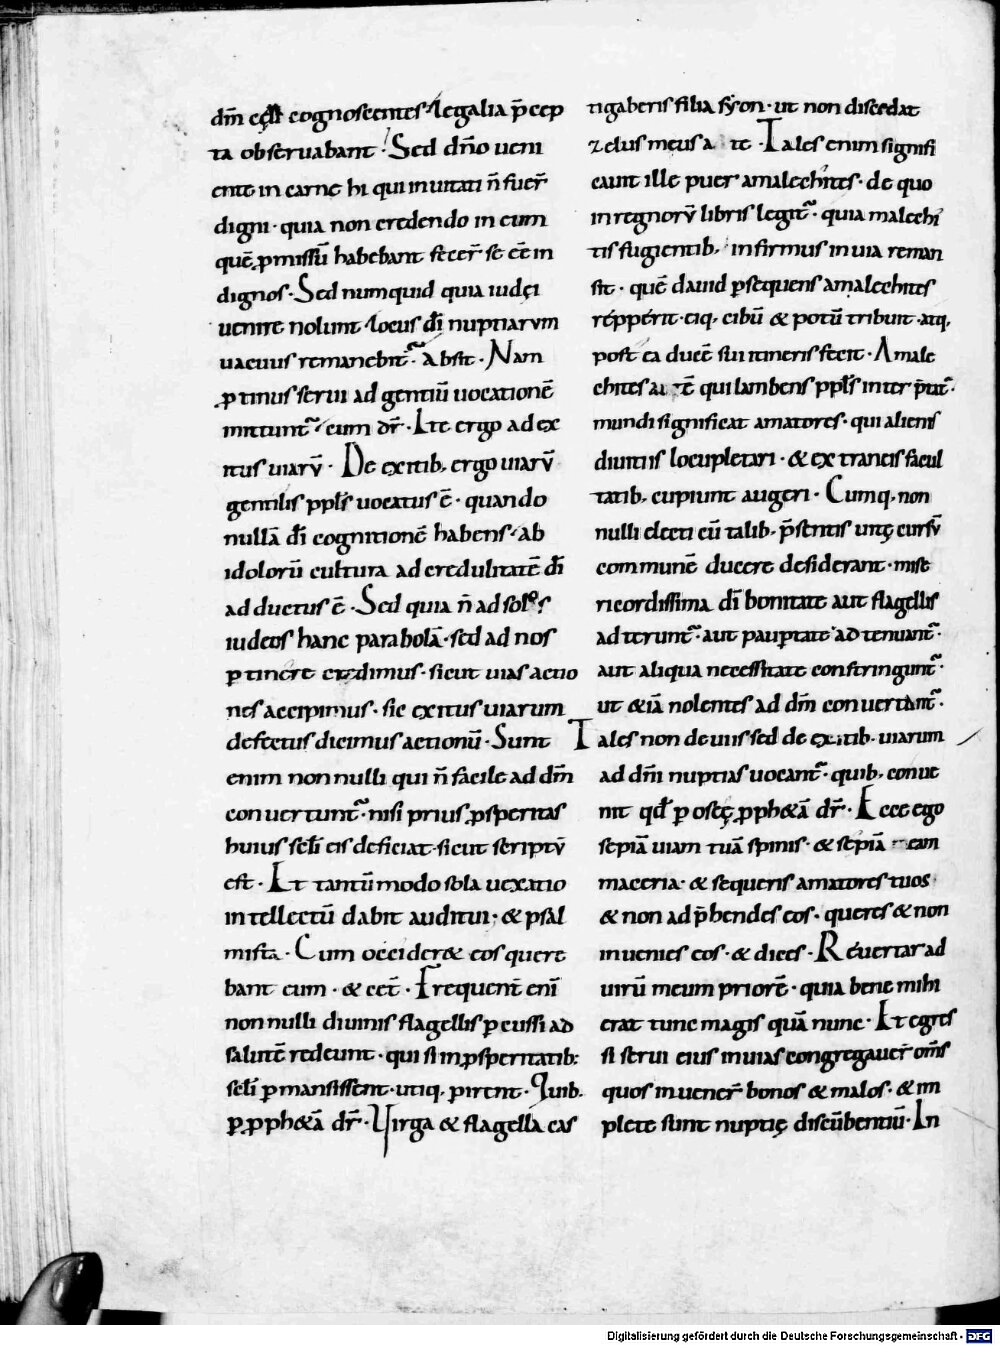 dm̄ cognoscentes legalia p̄cep
ta obseruabant. Sed dn̄o ueni
ente in carne hi qui inuitati n̄ fuer̄
digni. quia non credendo in eum
quē ꝓmissū habebant fecer̄ se eē in
dignos. Sed numquid quia iudęi
uenire nolunt locus dī nuptiarum
uacuus remanebit᷒. absit. Nam
ꝓtinus serui ad gentiū uocationē
mittunt᷒ cum dr̄. Ite ergo ad ex
itus uiarū. De exitib; ergo uiarū
gentilis ppl̄s uocatus ē. quando
nullā dī cognitionē habens ab
idolorū cultura ad credulitatē dī
adductus ē. Sed quia n̄ ad solos
iudeos hanc parabolā. sed ad nos
ꝑtinere credimus. sicut uias actio
nes accipimus. sic exitus uiarum
defectus dicimus actionū. Sunt
enim non nulli qui n̄ facile ad dm̄
conuertunt᷒. nisi prius ꝓsperitas
huius sc̄li eis deficiat. sicut scriptū
est. Et tantūmodo sola uexatio
intellectū dabit auditui; & psal
mista. Cum occider& eos quere
bant eum. & cet̄. Frequent̄ enī
non nulli diuinis flagellis ꝑcussi ad
salutē redeunt. qui si in ꝓsperitatib;
sc̄li ꝑmansissent. utiq; ꝑirent. Quib;
ꝑ ꝓph&ā dr̄. Uirga & flagella cas
tigaberis filia syon. ut non discedat
zelus meus a te. Tales enim signifi
cauit ille puer amalechites. de quo
in regnorū libris legit᷒. quia malechi
tis fugientib; infirmus in uia reman
sit. quē dauid ꝑsequens amalechites
répperit. eiq; cibū & potū tribuit. atq;
post ea ducē sui itineris fecit. Amale
chites autē qui lambens ppl̄s interp̄tat᷒.
mundi significat amatores. qui alienis
diuitiis locupletari. & extraneis facul
tatib; cupiunt augeri. Cumq; non
nulli electi cū talib; p̄sentis uitę cursū
communē ducere desiderant. mise
ricordissima dī bonitate aut flagellis
adterunt᷒. aut pauꝑtate adtenuant᷒.
aut aliqua necessitate constringunt᷒.
ut &iā nolentes ad dm̄ conuertant᷒.
Tales non de uiis sed de exitib; uiarum
ad dn̄i nuptias uocant᷒. quib; conue
nit qđ ꝑ oseę ꝓph&ā dr̄. Ecce ego
sepiā uiam tuā spinis. & sepiā eam
maceria. & sequeris amatores tuos
& non adp̄hendes eos. queres & non
inuenies eos. & dices. Reuertar ad
uirū meum priorē. quia bene mihi
erat tunc magis quā nunc. Et egres
si serui eius in uias congregauer̄ om̄s
quos inuener̄ bonos & malos. & im
plete sunt nuptię discūbentiū. In
Digitalisierung gefördert durch die Deutsche Forschungsgemeinschaft - DFG